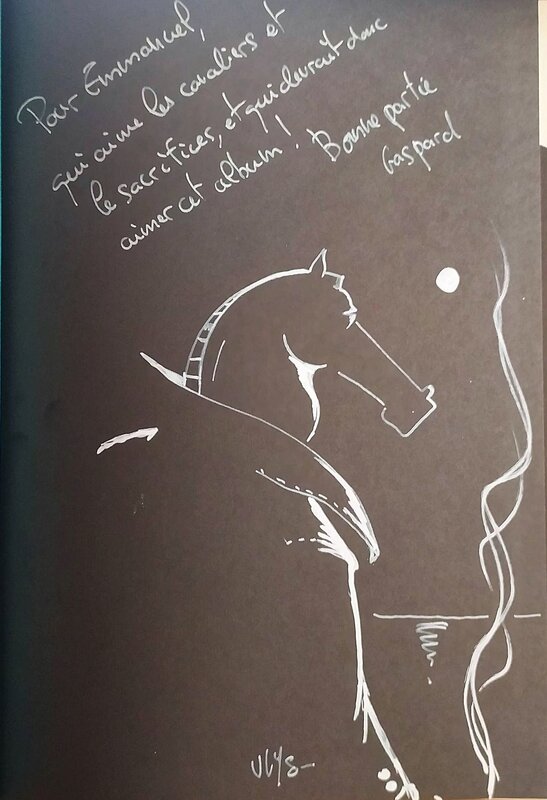 Pour Emmanuel,
qui aime les cavaliers et
le sacrifices, et qui devrait donc
aimer cet album ! Bonne partie
Gaspard
VLYS